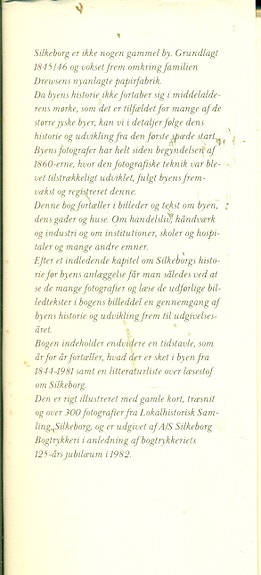 Silkeborg er ikke nogen gammel by. Grundlagt
1845/46 og vokset frem omkring familien
Drewsens nyanlagte papirfabrik.
Da byens historie ikke fortaber sig i middelalde-
rens mørke, som det er tilfældet for mange af de
større jyske byer, kan vi i detaljer følge dens
historie og udvikling fra den første spæde start.
Byens fotografer har helt siden begyndelsen af
1860-erne, hvor den fotografiske teknik var ble-
vet tilstrækkeligt udviklet, fulgt byens frem-
vækst og registreret denne.
Denne bog fortæller i billeder og tekst om byen,
dens gader og huse. Om handelsliv, håndværk
og industri og om institutioner, skoler og hospi-
taler og mange andre emner.
Efter et indledende kapitel om Silkeborgs histo-
rie før byens anlæggelse får man således ved at
se de mange fotografier og læse de udførlige bil-
ledtekster i bogens billeddel en gennemgang af
byens historie og udvikling frem til udgivelses-
året.
Bogen indeholder endvidere en tidstavle, som
år for år fortæller, hvad der er sket i byen fra
1844-1981 samt en litteraturliste over læsestof
om Silkeborg.
Den er rigt illustreret med gamle kort, træsnit
og over 300 fotografier fra Lokalhistorisk Sam-
ling, Silkeborg, og er udgivet af A/S Silkeborg
Bogtrykkeri i anledning af bogtrykkeriets
125-års jubilæum i 1982.